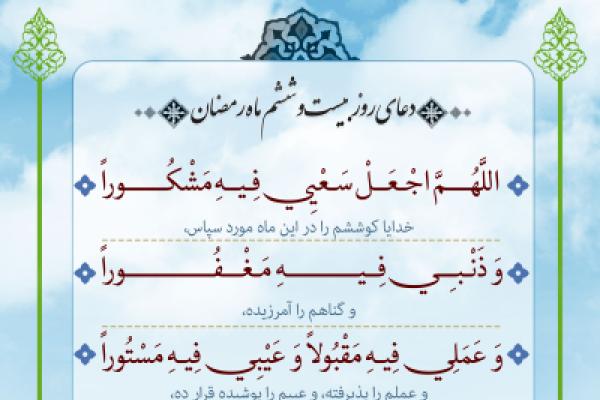 دعای روز بیست و ششم ماه رمضان
اللَّهُمَّ اجْعَلْ سَعْيِي فِيهِ مَشْكُوراً
خدایا کوششم را در این ماه مورد سپاس،
وَ ذَنْبِي فِيهِ مَغْفُوراً
و گناهم را آمرزیده،
وَ عَمَلِي فِيهِ مَقْبُولاً وَ عَيْبِي فِيهِ مَسْتُوراً
و عملم را پذیرفته، و عیبم را پوشیده قرار ده،